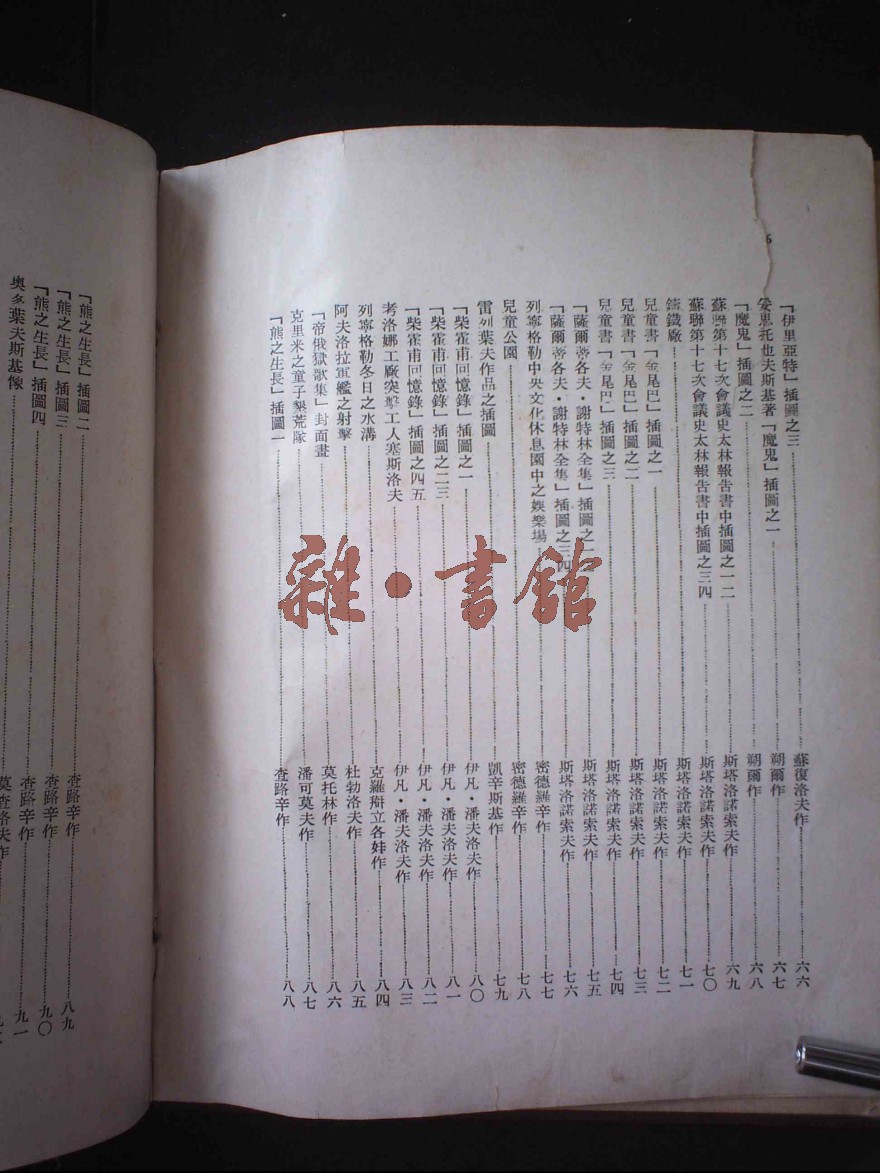 6
「伊里亞特」插圖之三……蘇復洛夫作……六六
妥思托也夫斯基著「魔鬼」插圖之一……翱爾作……六七
「魔鬼」插圖之二……翱爾作……六八
蘇聯第十七次會議史太林報告書中插圖之一二……斯塔洛諾索夫作……六九
蘇聯第十七次會議史太林報告書中插圖之三四……斯塔洛諾索夫作……七〇
鑄鐵廠……斯塔洛諾索夫作……七一
兒童書「金尾巴」插圖之一……斯塔洛諾索夫作……七二
兒童書「金尾巴」插圖之二……斯塔洛諾索夫作……七三
兒童書「金尾巴」插圖之三……斯塔洛諾索夫作……七四
「薩爾蒂各夫·謝特林全集」插圖之一二……斯塔洛諾索夫作……七五
「薩爾蒂各夫·謝特林全集」插圖之三四……斯塔洛諾索夫作……七六
列寧格勒中央文化休息園中之娛樂場……密德羅辛作……七七
兒童公園……密德羅辛作……七八
雷列葉夫作品之插圖……凱辛斯基作……七九
「柴霍甫回憶錄」插圖之一……伊凡·潘夫洛夫作……八〇
「柴霍甫回憶錄」插圖之二三……伊凡·潘夫洛夫作……八一
「柴霍甫回憶錄」插圖之四五……伊凡·潘夫洛夫作……八二
考洛娜工廠突擊工人塞斯洛夫……伊凡·潘夫洛夫作……八三
列寧格勒冬日之水溝……克羅辯立各娃作……八四
阿夫洛拉軍艦之射擊……杜勃洛夫作……八五
「帝俄獄歌集」封面畫……莫托林作……八六
克里米之童子墾荒隊……潘可莫夫作……八七
「熊之生長」插圖一……查路辛作……八八
「熊之生長」插圖二……查路辛作……八九
「熊之生長」插圖三……查路辛作……九〇
「熊之生長」插圖四……查路辛作……九一
奥多葉夫斯基像……莫查洛夫作
雜·書館